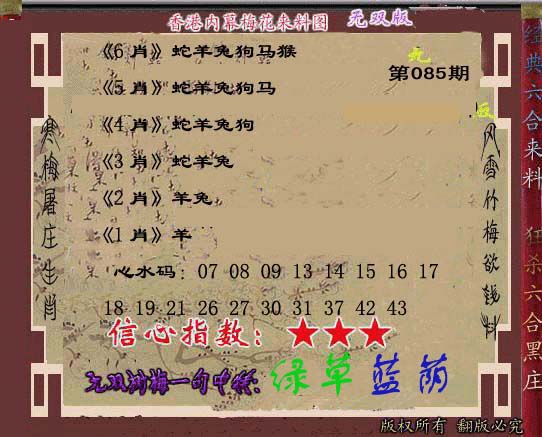 香港内幕梅花来料图 无双版
《6 肖》蛇羊兔狗马猴
无
第085期
《5 肖》蛇羊兔狗马
《4 肖》蛇羊兔狗
《3 肖》蛇羊兔
《2 肖》羊兔
《1 肖》羊
心水码：07 08 09 13 14 15 16 17
18 19 21 26 27 30 31 37 42 43
信心指数：★★★
无双剑梅一句中特：绿草蓝荫
寒梅屠庄生肖
风雪竹梅欲钱料
经典六合来料 狂杀六合黑庄
版权所有 翻版必究